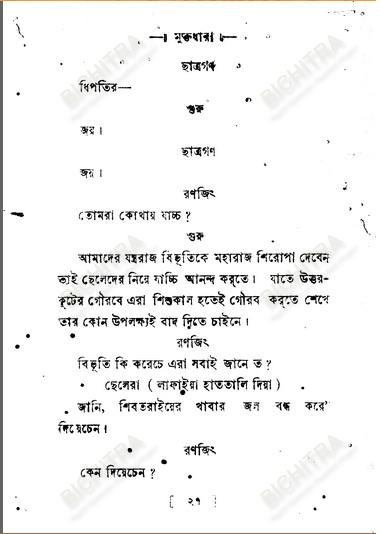 মুক্তধারা
ছাত্রগণ
ধিপতির—
গুরু
জয়।
ছাত্রগণ
জয়।
রণজিৎ
তোমরা কোথায় যাচ্চ ?
গুরু
আমাদের যন্ত্ররাজ বিভূতিকে মহারাজ শিরোপা দেবেন
তাই ছেলেদের নিয়ে যাচ্চি আনন্দ করতে। যাতে উত্তর-
কূটের গৌরবে এরা শিশুকাল হতেই গৌরব করতে শেখে
তার কোন উপলক্ষ্যই বাদ দিতে চাইনে।
রণজিৎ
বিভূতি কি করেচে এরা সবাই জানে ত ?
ছেলেরা ( লাফাইয়া হাততালি দিয়া )
জানি, শিবতরাইয়ের খাবার জল বন্ধ করে'
দিয়েচেন।
রণজিৎ
কেন দিয়েচেন ?
[ ২৭ ]
BICHITRA
BICHITRA
BICHITRA
BICHITRA
BICHITRA
BICHITRA